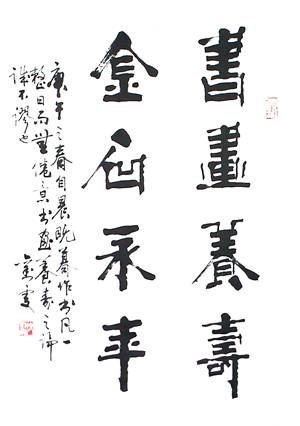 書畫養壽
金石永年
庚午之春自晨既暮作書凡一
整日而無倦意書畫養壽之論
誠不謬也